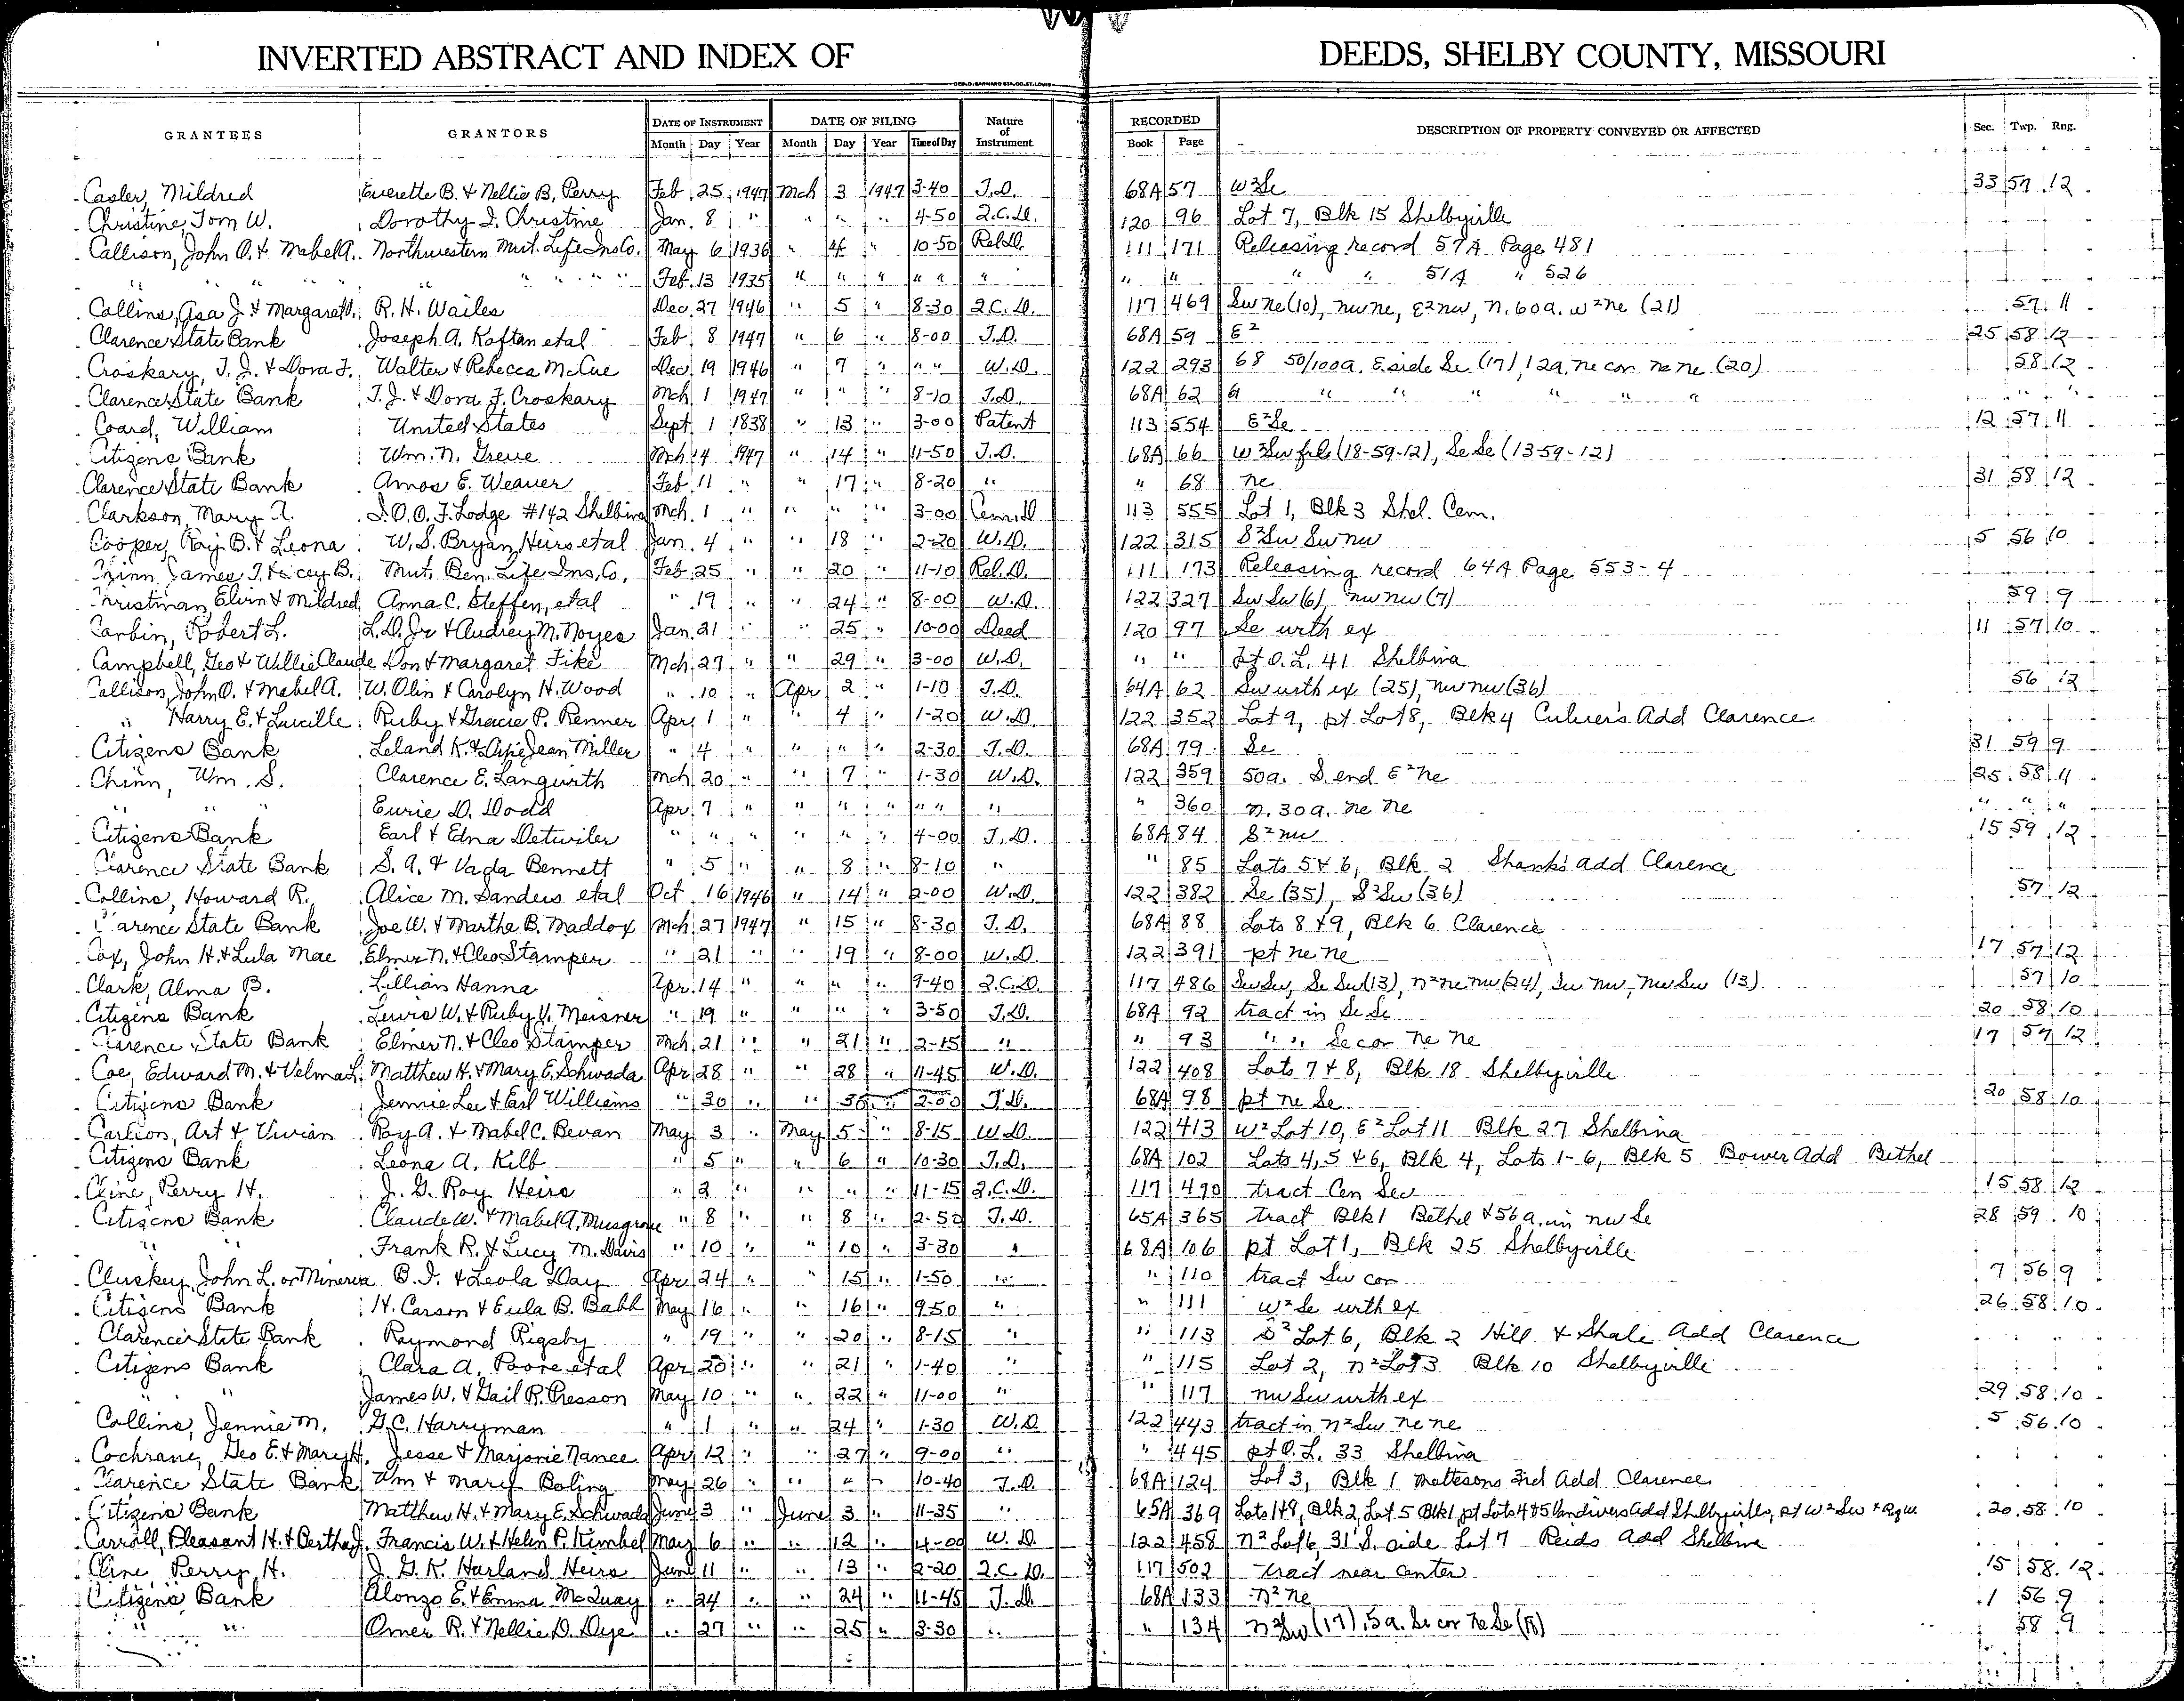 INVERTED ABSTRACT AND INDEX OF DEEDS, SHELBY COUNTY, MISSOURI
GEO.D.BARNARD STA.CO.ST.LOUIS
GRANTEES GRANTORS DATE OF INSTRUMENT DATE OF FILING Nature of Instrument RECORDED DESCRIPTION OF PROPERTY CONVEYED OR AFFECTED Sec. Twp. Rng.
Month Day Year Month Day Year Time of Day Book Page
Casler, Mildred Everette B. & Nellie B. Perry Feb 25 1947 Mch 3 1947 3-40 T.D. 68A 57 W²Se 33 57 12
Christine, Tom W. Dorothy I. Christine Jan. 8 " " " " 4-50 2.C.D. 120 96 Lot 7, Blk 15 Shelbyville
Callison, John O. & Mabel A. Northwestern Mut. Life Ins Co. May 6 1936 " 4 " 10-50 Rel.D. 111 171 Releasing record 57A Page 481
" " " " " " Feb. 13 1935 " " " " " " " " " " 51A " 526
Collins, Asa J. & Margaret R. H. Wailes Dec 27 1946 " 5 " 8-30 2.C.D. 117 469 Sw Ne (10), nw ne, E²nw, N. 60a. w²ne (21) 57 11
Clarence State Bank Joseph A. Kaftan etal Feb 8 1947 " 6 " 8-00 T.D. 68A 59 E² 25 58 12
Croskary, T. J. & Dora F. Walter & Rebecca McCue Dec 19 1946 " 7 " " " W.D. 122 293 68 50/100a. E side Se (17), 12a, ne cor ne ne (20) 58 12
Clarence State Bank T. J. & Dora F. Croskary Mch 1 1947 " " " 8-10 T.D. 68A 62 " " " " " " " "
Coard, William United States Sept 1 1838 " 13 " 3-00 Patent 113 554 E²Se 12 57 11
Citizens Bank Wm. N. Greue Mch 14 1947 " 14 " 11-50 T.D. 68A 66 W²Sw frl (18-59-12), Se Se (13-59-12)
Clarence State Bank Amos E. Weaver Feb 11 " " 17 " 8-20 " " 68 ne 31 58 12
Clarkson, Mary A. I.O.O.F. Lodge #142 Shelbina Mch. 1 " " " " 3-00 Cem.D 113 555 Lot 1, Blk 3 Shel. Cem.
Cooper, Roy B. & Leona W. S. Bryan Heirs etal Jan. 4 " " 18 " 2-20 W.D. 122 315 S²Sw Sw nw 5 56 10
Chinn, James T. & B. Mut. Ben. Life Ins. Co. Feb 25 " " 20 " 11-10 Rel.D. 111 173 Releasing record 64A Page 553-4
Christman, Elvin & Mildred Anna C. Steffen, etal " 19 " " 24 " 8-00 W.D. 122 327 Sw Sw (6), nw nw (7) 59 9
Corbin, Robert L. L.D. Jr & Audrey M. Noyes Jan. 21 " " 25 " 10-00 Deed 120 97 Se urth ex 11 57 10
Campbell, Geo & Willie Claude Don & Margaret Fike Mch 27 " " 29 " 3-00 W.D. " " Pt O.L. 41 Shelbina
Callison, John O. & Mabel A. W. Olin & Carolyn H. Wood " 10 " Apr 2 " 1-10 T.D. 64A 62 Sw urth ex (25), nw nw (36) 56 12
" Harry E. & Lucille Ruby & Gracie P. Renner Apr 1 " " 4 " 1-20 W.D. 122 352 Lot 9, pt Lot 8, Blk 4 Culver's Add Clarence
Citizens Bank Leland K. & Jean Miller " 4 " " " " 2-30 T.D. 68A 79 Se 31 59 9
Chinn, Wm. S. Clarence E. Langwith Mch 20 " " 7 " 1-30 W.D. 122 359 50a. S. end E²ne 25 58 11
" " " Eurie D. Dodd Apr 7 " " " " " " " " 360 N. 30a. ne ne " " "
Citizens Bank Earl & Edna Detwiler " " " " " " 4-00 T.D. 68A 84 S²nw 15 59 12
Clarence State Bank S. A. & Vada Bennett " 5 " " 8 " 8-10 " " 85 Lots 5 & 6, Blk 2 Shanks add Clarence
Collins, Howard R. Alice M. Sanders etal Oct 16 1946 " 14 " 2-00 W.D. 122 382 Se (35), S²Sw (36) 57 12
Clarence State Bank Joe W. & Martha B. Maddox Mch 27 1947 " 15 " 8-30 T.D. 68A 88 Lots 8 & 9, Blk 6 Clarence
Cox, John H. & Lula Mae Elmer N. & Cleo Stamper " 21 " " 19 " 8-00 W.D. 122 391 pt ne ne 17 57 12
Clark, Alma B. Lillian Hanna Apr 14 " " " " 9-40 2.C.D. 117 486 Sw Sw, Se Sw (13), n²ne nw (24), Sw nw, nw Sw (13) 57 10
Citizens Bank Lewis W. & Ruby V. Meisner " 19 " " " " 3-50 T.D. 68A 92 tract in Se Se 20 58 10
Clarence State Bank Elmer N. & Cleo Stamper Mch 21 " " 21 " 2-15 " " 93 " " Se cor ne ne 17 57 12
Coe, Edward M. & Velma L. Matthew H. & Mary E. Schwada Apr 28 " " 28 " 11-45 W.D. 122 408 Lots 7 & 8, Blk 18 Shelbyville
Citizens Bank Jennie Lee & Earl Williams " 30 " " 30 " 2-00 T.D. 68A 98 pt ne Se 20 58 10
Carlson, Art & Vivian Roy A. & Mabel C. Bevan May 3 " May 5 " 8-15 W.D. 122 413 W² Lot 10, E² Lot 11 Blk 27 Shelbina
Citizens Bank Leona A. Kilb " 5 " " 6 " 10-30 T.D. 68A 102 Lots 4, 5 & 6, Blk 4, Lots 1-6, Blk 5 Bower Add Bethel
Cline, Perry H. J. G. Roy Heirs " 2 " " " " 11-15 2.C.D. 117 490 tract Cen Sec 15 58 12
Citizens Bank Claude W. & Mabel A. Musgrove " 8 " " 8 " 2-50 T.D. 65A 365 tract Blk 1 Bethel & 56a. in nw Se 28 59 10
" " Frank R. & Lucy M. Davis " 10 " " 10 " 3-30 " 68A 106 pt Lot 1, Blk 25 Shelbyville
Cluskey, John L. or Minerva B. I. & Leola Day Apr 24 " " 15 " 1-50 " " 110 tract Sw cor 7 56 9
Citizens Bank H. Carson & Eula B. Babb May 16 " " 16 " 9-50 " " 111 W²Se urth ex 26 58 10
Clarence State Bank Raymond Rigsby " 19 " " 20 " 8-15 " " 113 S² Lot 6, Blk 2 Hill & Shale Add Clarence
Citizens Bank Clara A. Poore etal Apr 20 " " 21 " 1-40 " " 115 Lot 2, n² Lot 3 Blk 10 Shelbyville
" " James W. & Gail R. Presson May 10 " " 22 " 11-00 " " 117 nw Sw urth ex 29 58 10
Collins, Jennie M. G.C. Harryman " 1 " " 24 " 1-30 W.D 122 443 tract in n²Sw ne ne 5 56 10
Cochrane, Geo E. & Mary H. Jesse & Marjorie Nance Apr 12 " " 27 " 9-00 " " 445 pt O.L. 33 Shelbina
Clarence State Bank Wm & Mary Boling May 26 " " " " 10-40 T.D. 68A 124 Lot 3, Blk 1 Mattesons 3rd Add Clarence
Citizens Bank Matthew H. & Mary E. Schwada June 3 " June 3 " 11-35 " 65A 369 Lots 1 & 8, Blk 2, Lot 5 Blk 1, pt Lots 4 & 5 Vandivers Add Shelbyville, pt W²Sw & RgW. 20 58 10
Carroll, Pleasant H. & Bertha J. Francis W. & Helen P. Kimbel May 6 " " 12 " 4-00 W.D. 122 458 N² Lot 6, 31' S. side Lot 7 Reids Add Shelbina
Cline, Perry H. J. G. K. Harland Heirs June 11 " " 13 " 2-20 2.C.D. 117 502 tract near center 15 58 12
Citizens Bank Alonzo E. & Emma McQuay " 24 " " 24 " 11-45 T.D. 68A 133 N²ne 1 56 9
" " Omer R. & Nellie D. Dye " 27 " " 25 " 3-30 " " 134 N²Sw (17), 5a. Se cor Ne Se (18) 58 9